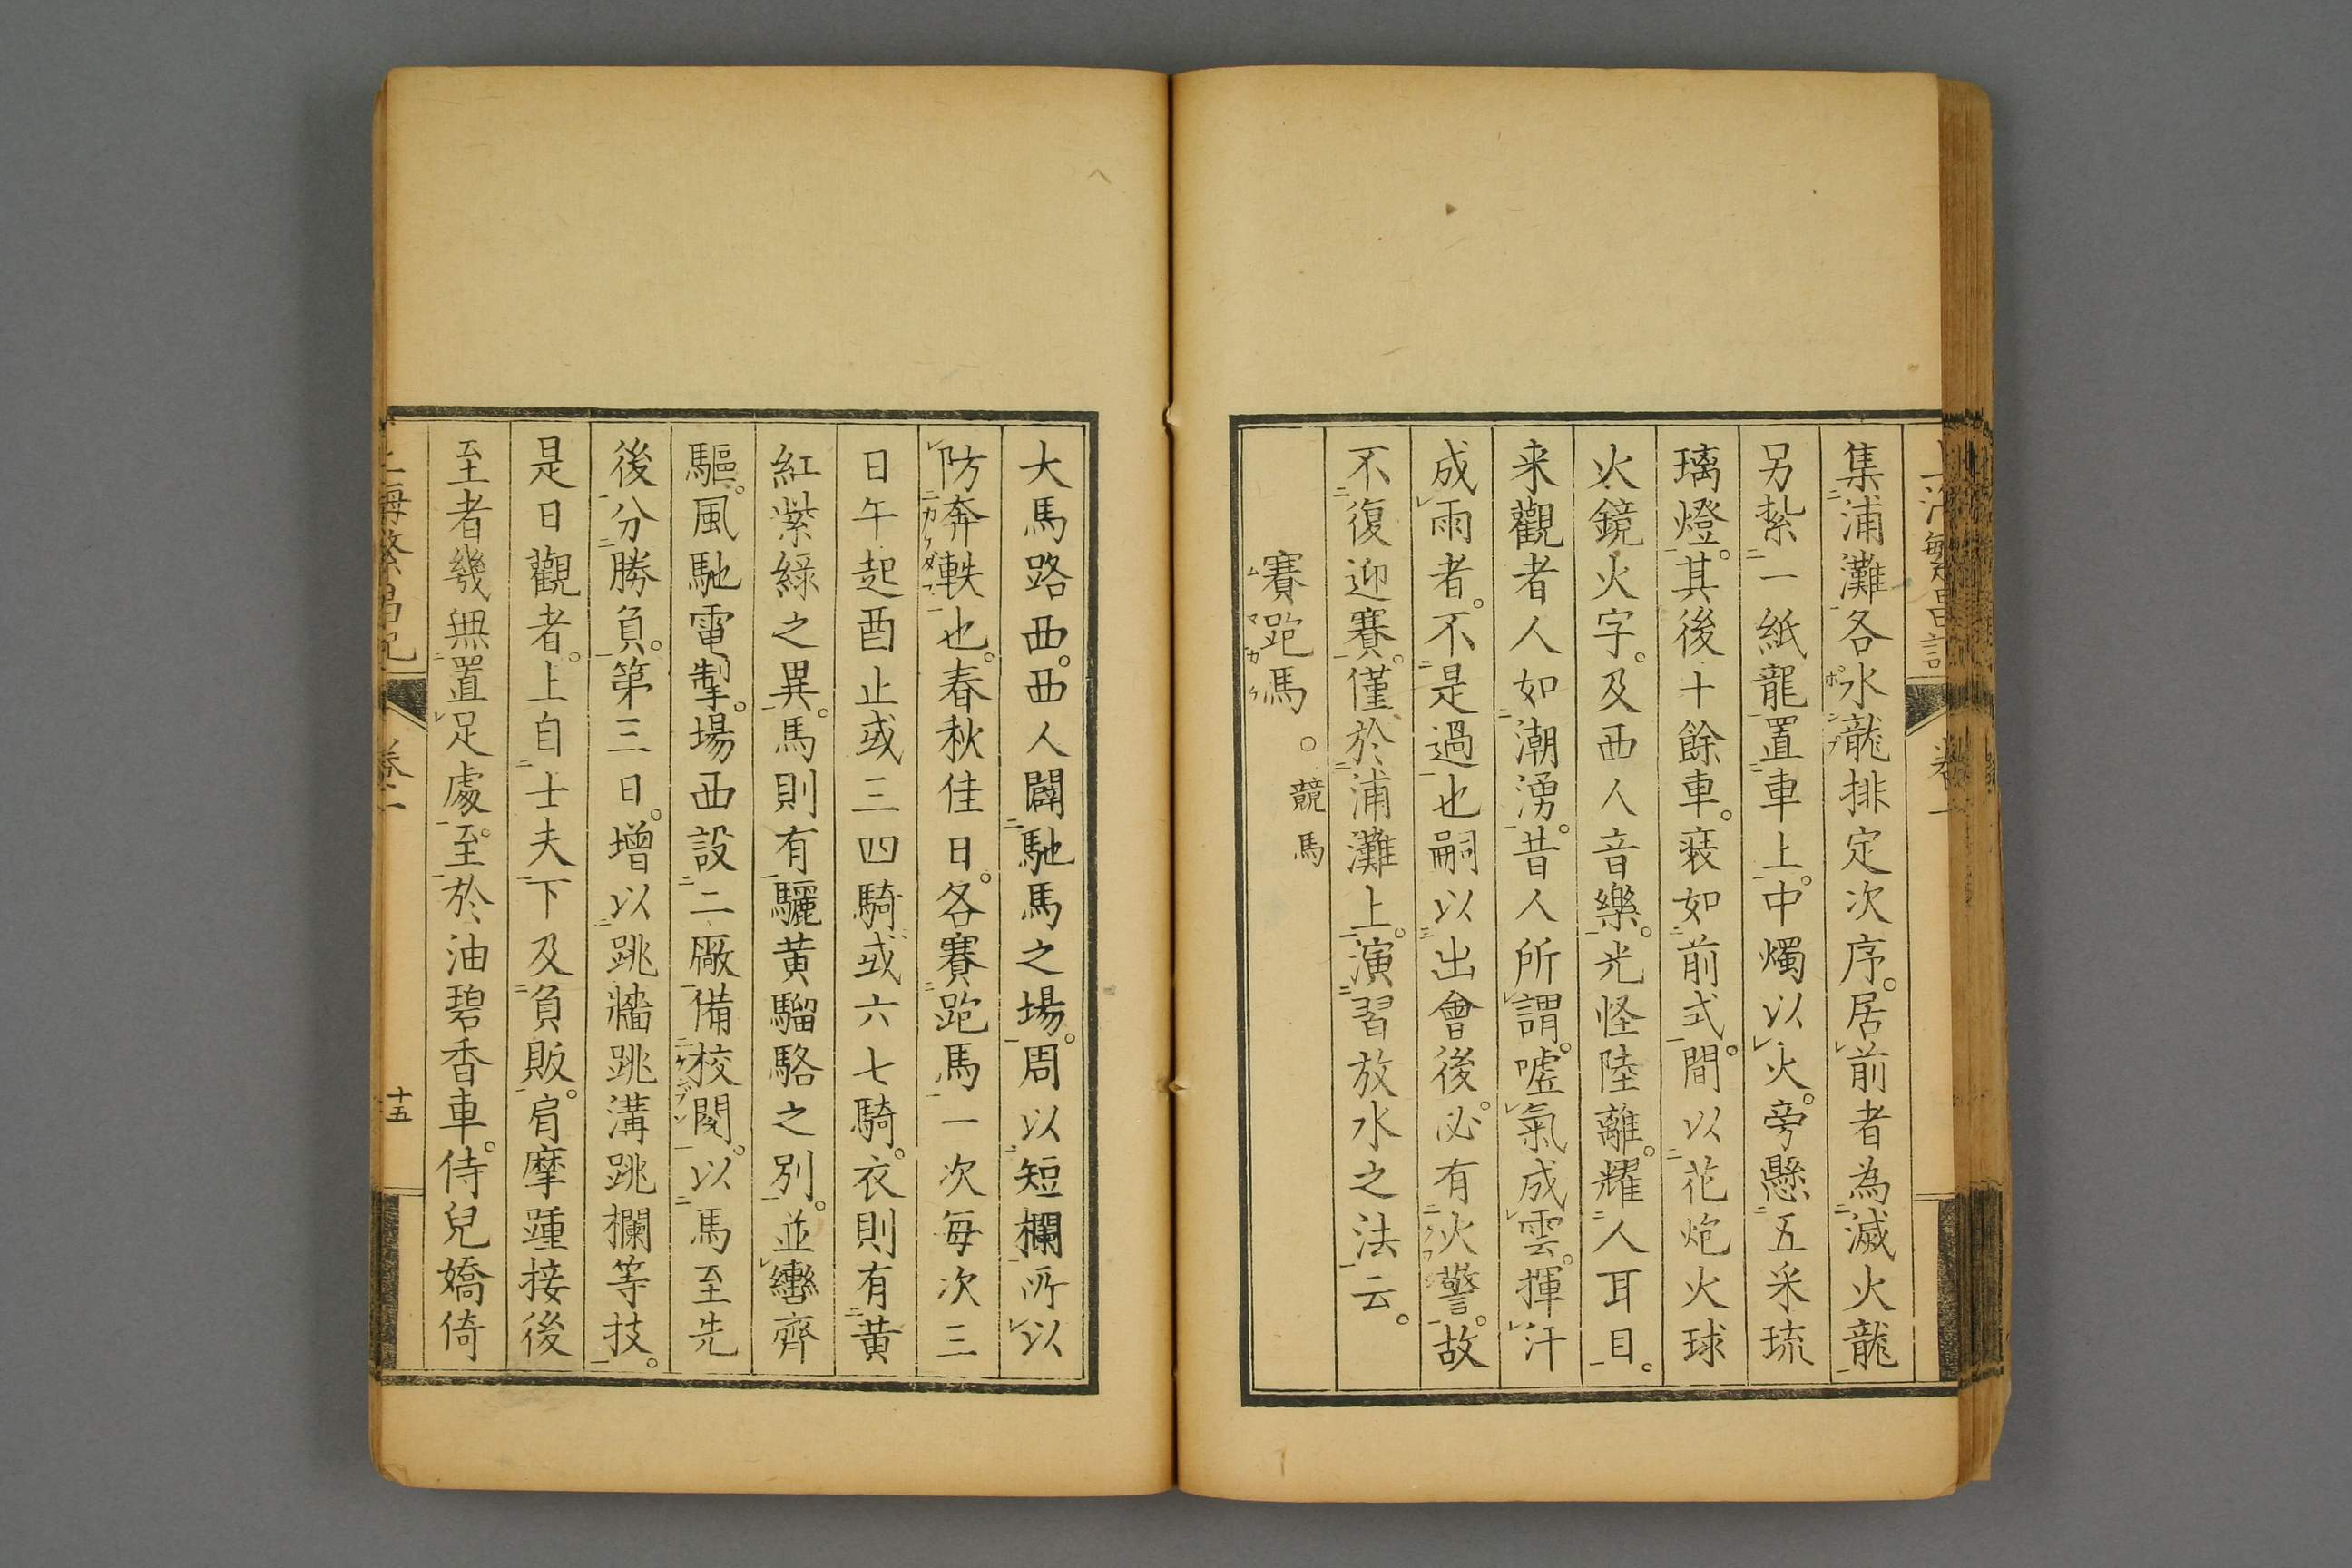 集浦灘各水龍排定次序。居前者為滅火龍
另紮一紙龍置車上。中燭以火。旁懸五采琉
璃燈。其後十餘車。裝如前式。間以花炮火球
火鏡火字。及西人音樂。光怪陸離。耀人耳目。
来觀者人如潮湧。昔人所謂。噓氣成雲。揮汗
成雨者。不是過也嗣以出會後。必有火警。故
不復迎賽。僅於浦灘上。演習放水之法云。
賽跑馬。競馬
大馬路西。西人闢馳馬之場。周以短欄所以
防奔軼也。春秋佳日。各賽跑馬一次每次三
日午起酉止或三四騎或六七騎。衣則有黄
紅紫綠之異。馬則有驪黄騮駱之別。並轡齊
驅。風馳電掣。場西設二廠備校閱。以馬至先
後分勝負。第三日。增以跳牆跳溝跳欄等技。
是日觀者。上自士夫下及負販。肩摩踵接後
至者幾無置足處。至於油碧香車。侍兒嬌倚
上海繁昌記
卷二
十五